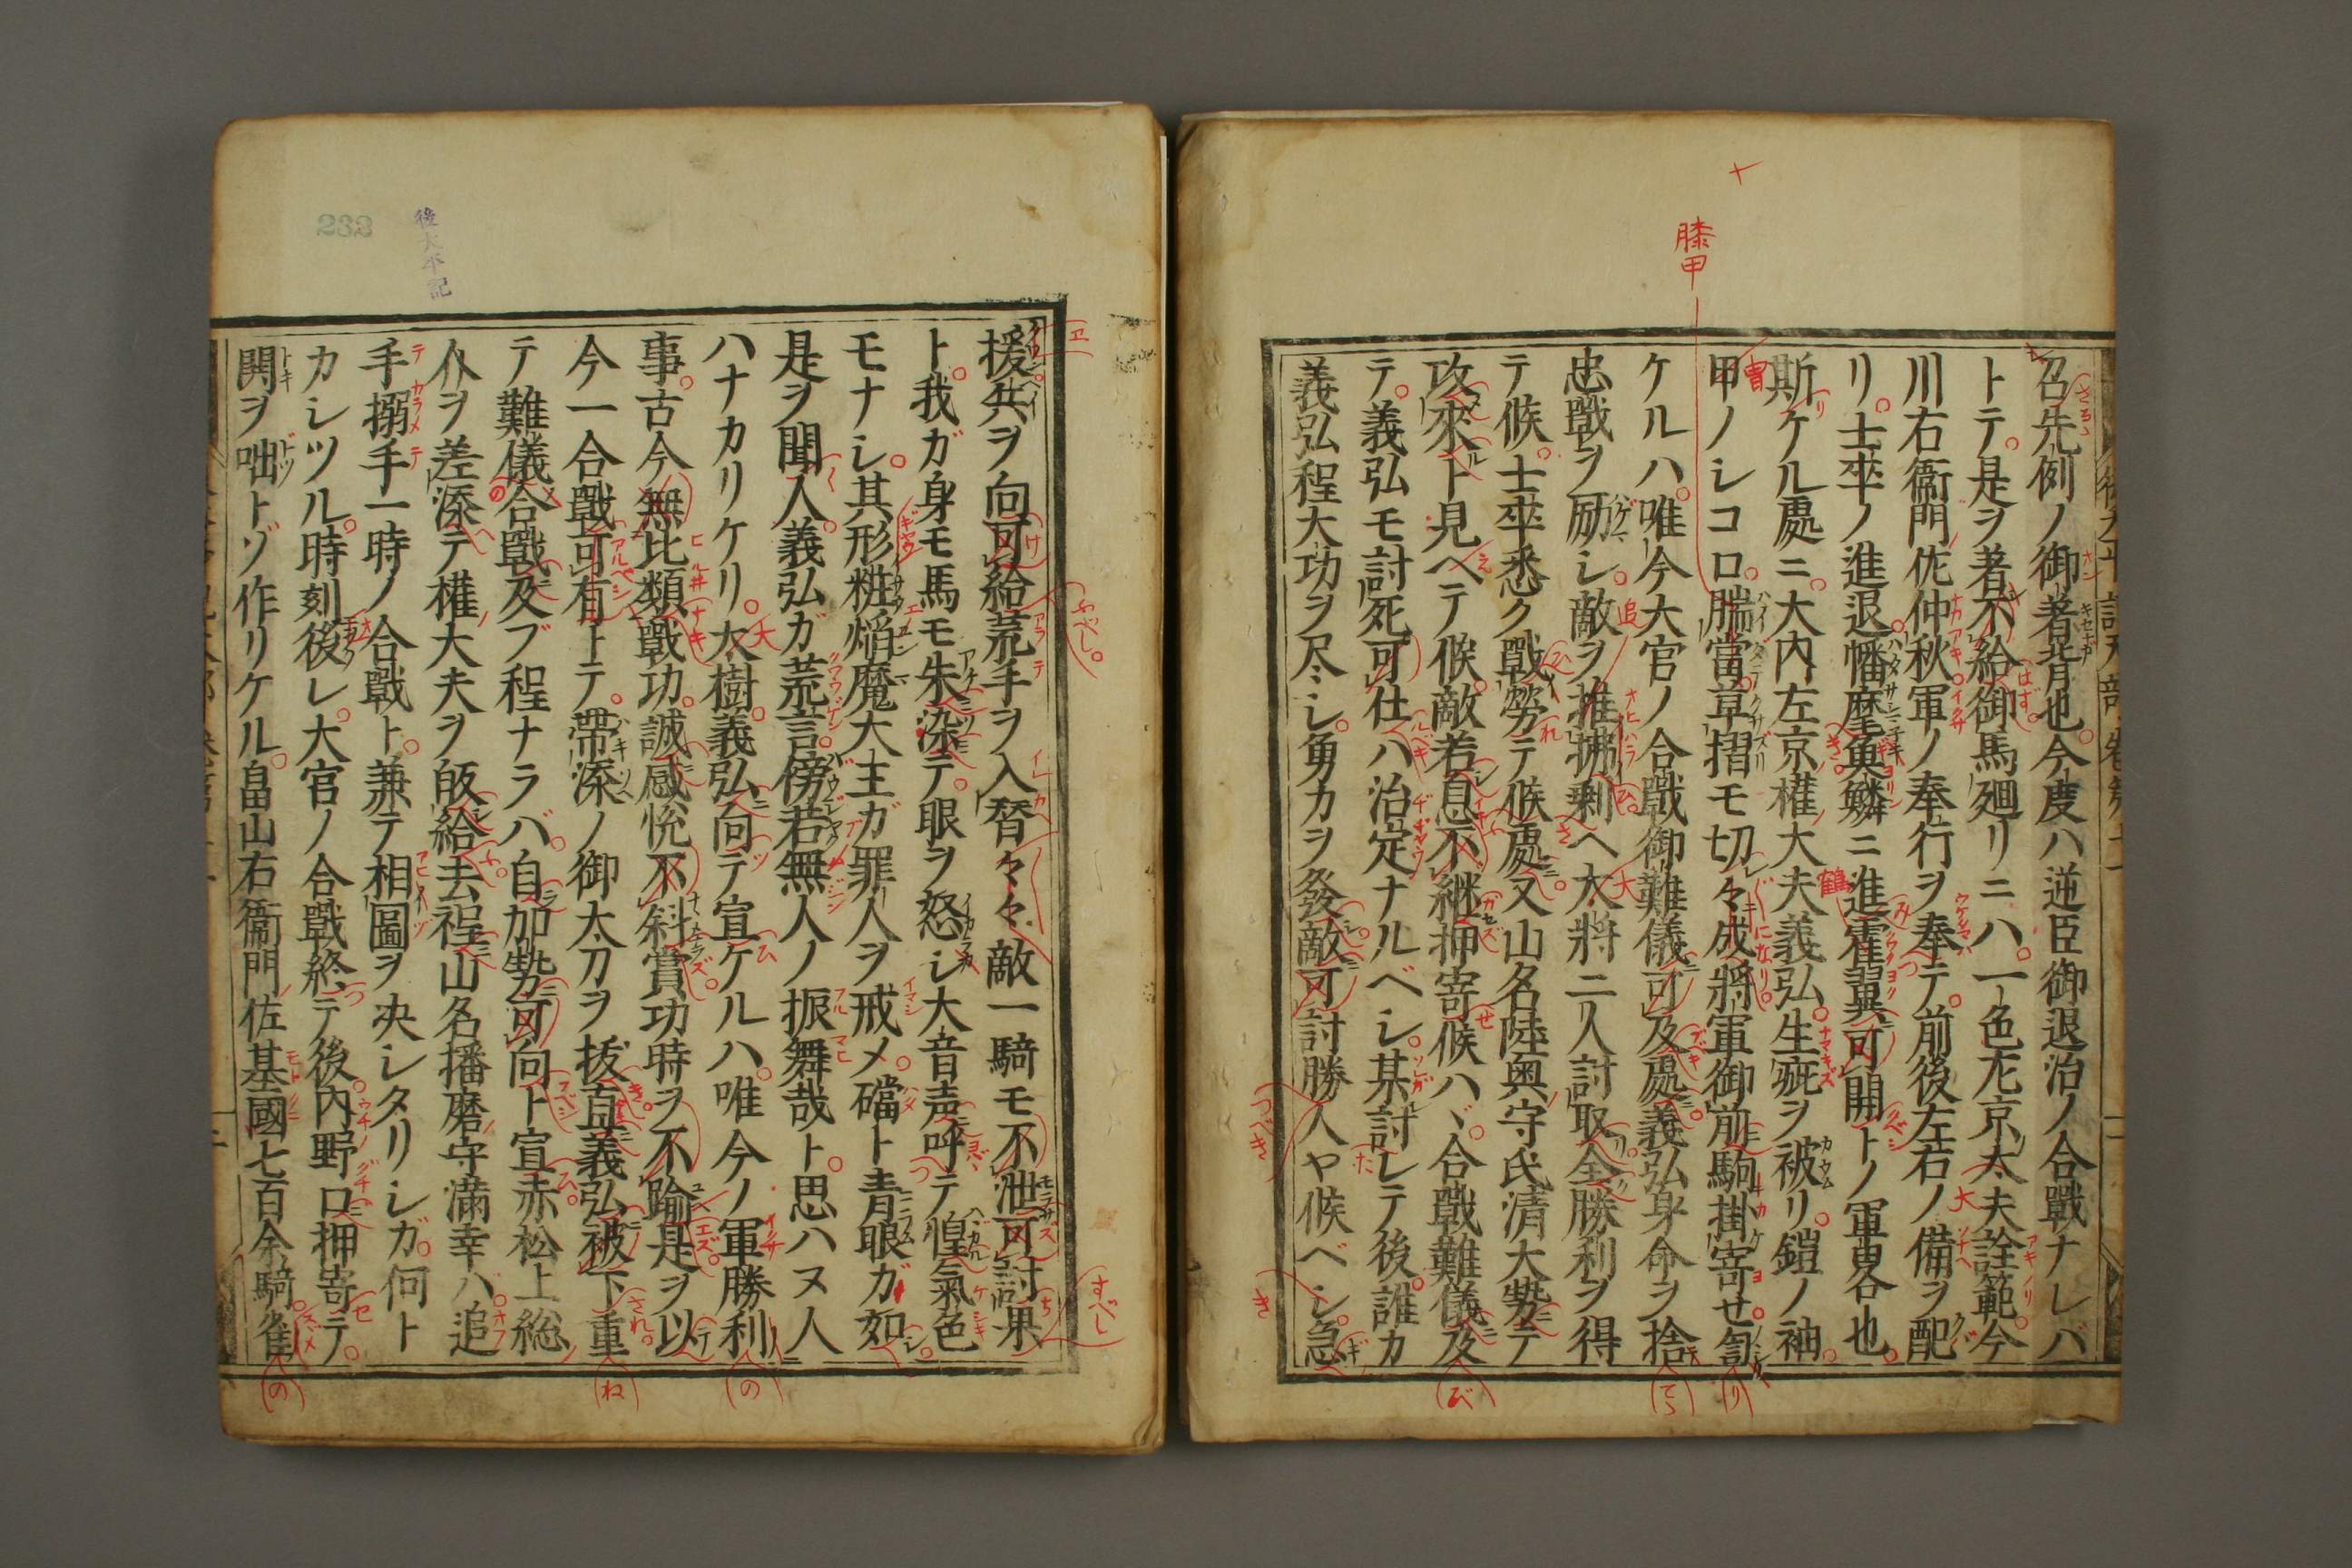 膝甲
召先例ノ御著背也今度ハ逆臣御退治ノ合戰ナレバ
トテ是ヲ著不給御馬廻リニハ一色左京太夫詮範今
川右衞門佐仲秋軍ノ奉行ヲ奉テ前後左右ノ備ヲ配
リ士卒ノ進退幡麾魚鱗ニ進霍翼可開トノ軍畧也
斯ケル處ニ大内左京權大夫義弘生疵ヲ被リ鎧ノ袖
甲ノシコロ腨當草摺モ切々成將軍御前駒掛寄せ訇
ケルハ唯今大官ノ合戰御難儀可及處義弘身命ヲ捨
忠戰ヲ励シ敵ヲ推拂剩ヘ太將二人討取全勝利ヲ得
テ候士卒悉ク戰勞テ候處又山名陸奥守氏清大勢テ
攻來ト見ヘテ候敵若息不継押寄候ハヾ合戰難儀及
テ義弘モ討死可仕ハ治定ナルベシ某討レテ後誰カ
義弘程大功ヲ尽シ勇力ヲ發敵可討勝人ヤ候ベシ急
後太平記
233
援兵ヲ向可給荒手ヲ入替々々敵一騎モ不泄可討果
ト我ガ身モ馬モ朱染テ眼ヲ怒シ大音声呼テ惶氣色
モナシ其形粧焔魔大王ガ罪人ヲ戒メ礑ト青眼ガ如
是ヲ聞人義弘ガ荒言傍若無人ノ振舞哉ト思ハヌ人
ハナカリケリ太樹義弘向テ宣ケルハ唯今ノ軍勝利
事古今無比類戰功誠感悦不斜賞功時ヲ不踰是ヲ以
今一合戰可有トテ帶添ノ御太刀ヲ拔直義弘被下重
テ難儀合戰及ブ程ナラバ自加勢可向ト宣赤松上総
介ヲ差添テ權大夫ヲ皈給去程山名播磨守滿幸ハ追
手搦手一時ノ合戰ト兼テ相圖ヲ决シタリシガ何ト
カシツル時刻後レ大官ノ合戰終テ後内野口押寄テ
鬨ヲ咄トゾ作リケル畠山右衞門佐基國七百余騎雀